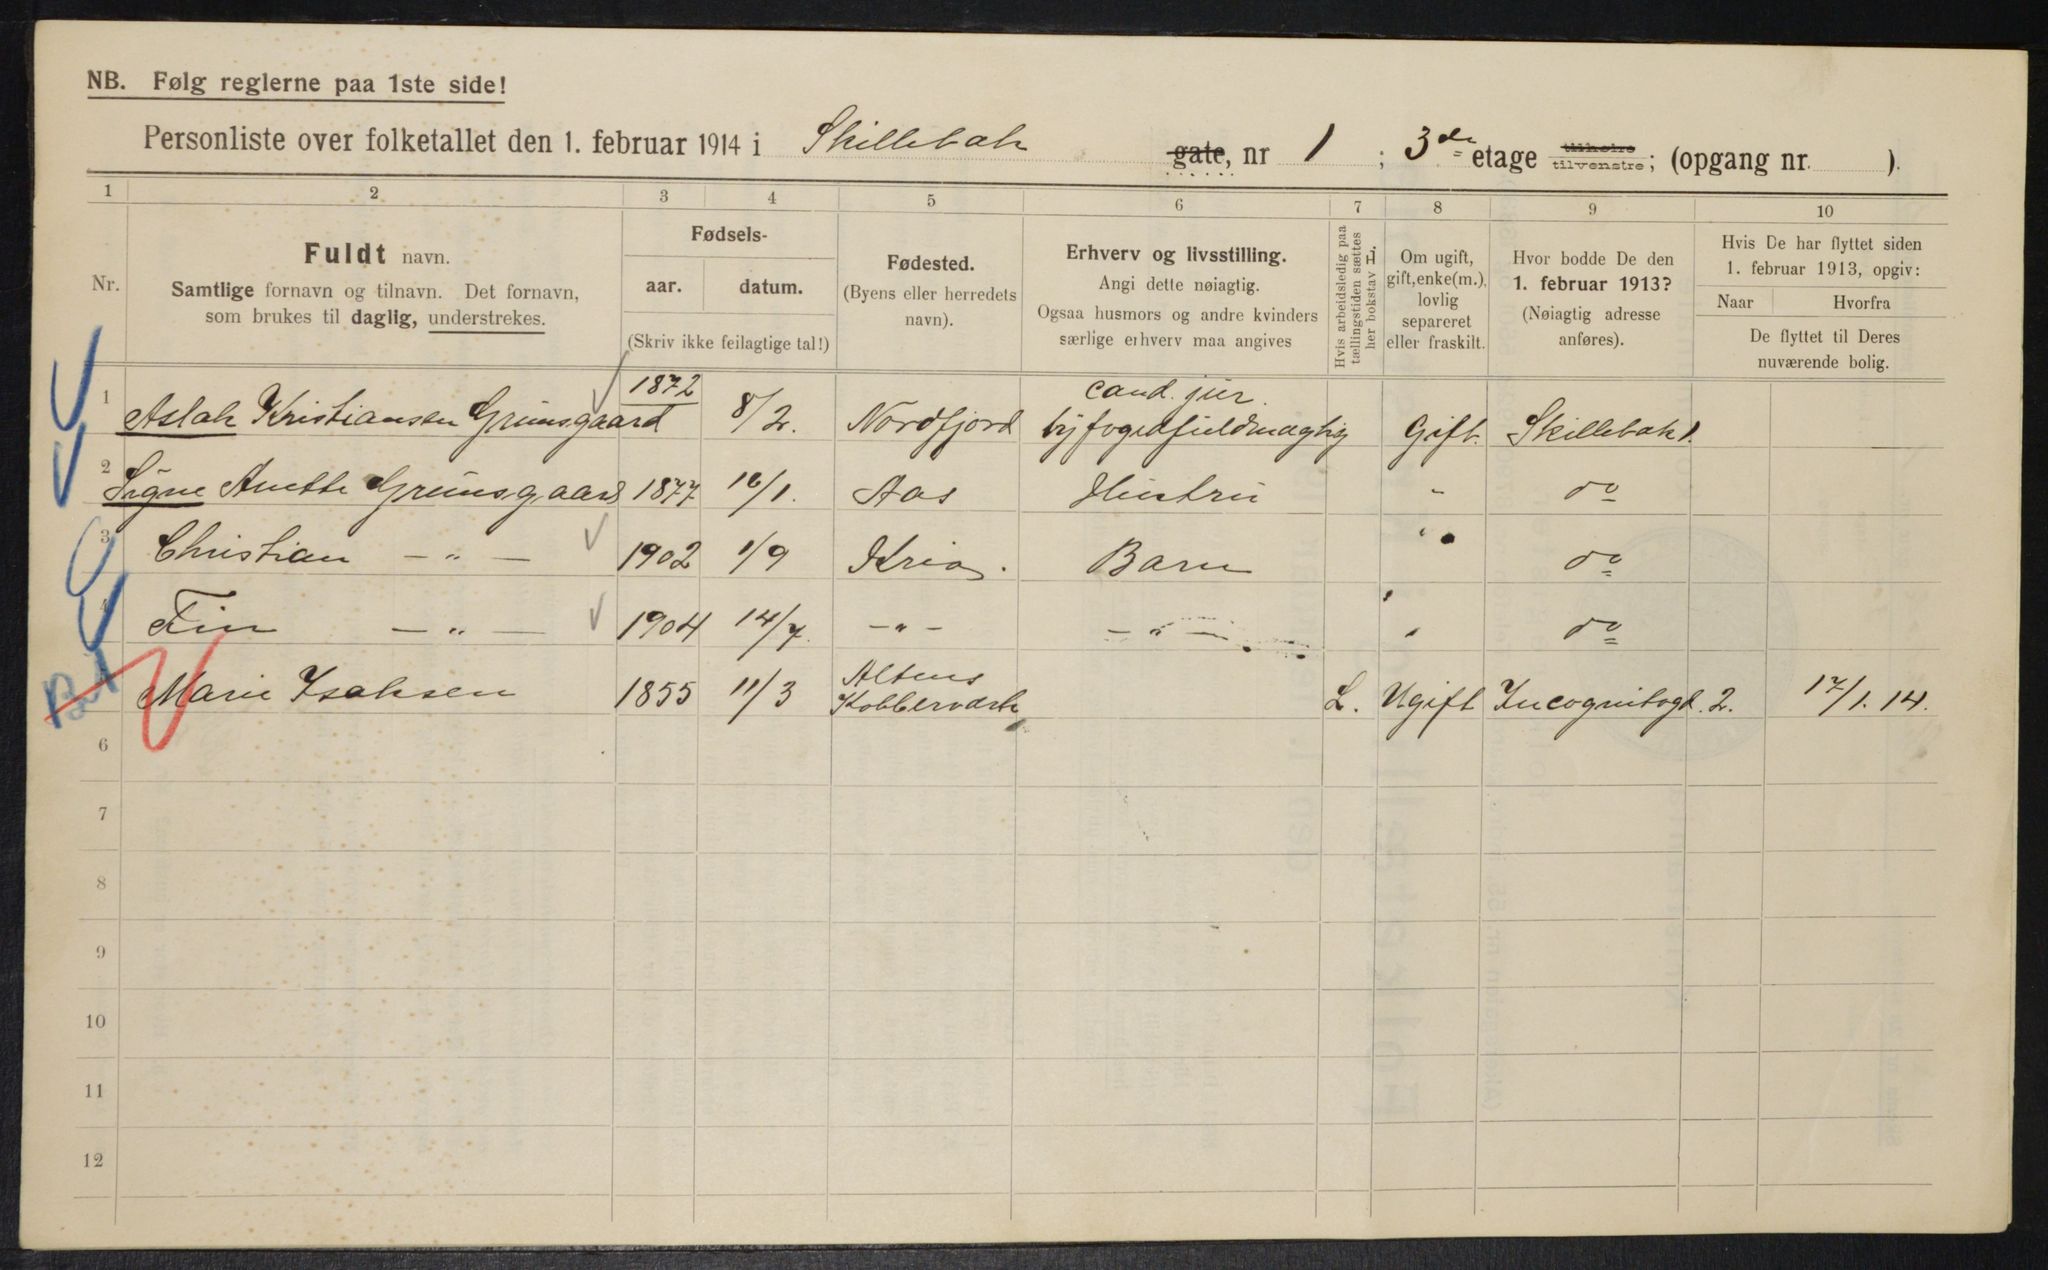 NB. Følg reglerne paa 1ste side!
Personliste over folketallet den 1. februar 1914 i Skillebak gate, nr 1 ; 3de etage tilhøire tilvenstre; (opgang nr. ).
1 2 3 4 5 6 7 8 9 10
Nr.
Fuldt navn.
Samtlige fornavn og tilnavn. Det fornavn,
som brukes til daglig, understrekes.
Fødsels-
aar. datum.
(Skriv ikke feilagtige tal!)
Fødested.
(Byens eller herredets
navn).
Erhverv og livsstilling.
Angi dette nøiagtig.
Ogsaa husmors og andre kvinders
særlige erhverv maa angives
Hvis arbeidsledig paa
tællingstiden sættes
her bokstav L.
Om ugift,
gift, enke(m.),
lovlig
separeret
eller fraskilt.
Hvor bodde De den
1. februar 1913?
(Nøiagtig adresse
anføres).
Hvis De har flyttet siden
1. februar 1913, opgiv:
Naar Hvorfra
De flyttet til Deres
nuværende bolig.
1 Aslak Kristiansen Grimsgaard 1872 8/2. Nordfjord cand. jur. byfogedfuldmægtig Gift. Skillebak 1.
2 Signe Anette Grimsgaard 1877 16/1. Aas Hustru " do
3 Christian — " — 1902 1/9 Kria. Barn " do
4 Fin — " — 1904 14/7. — " — — " — " do
5 Marie Isaksen 1855 11/3 Altens Kobberværk L. Ugift Incognitogd. 2. 17/1. 14.
6
7
8
9
10
11
12